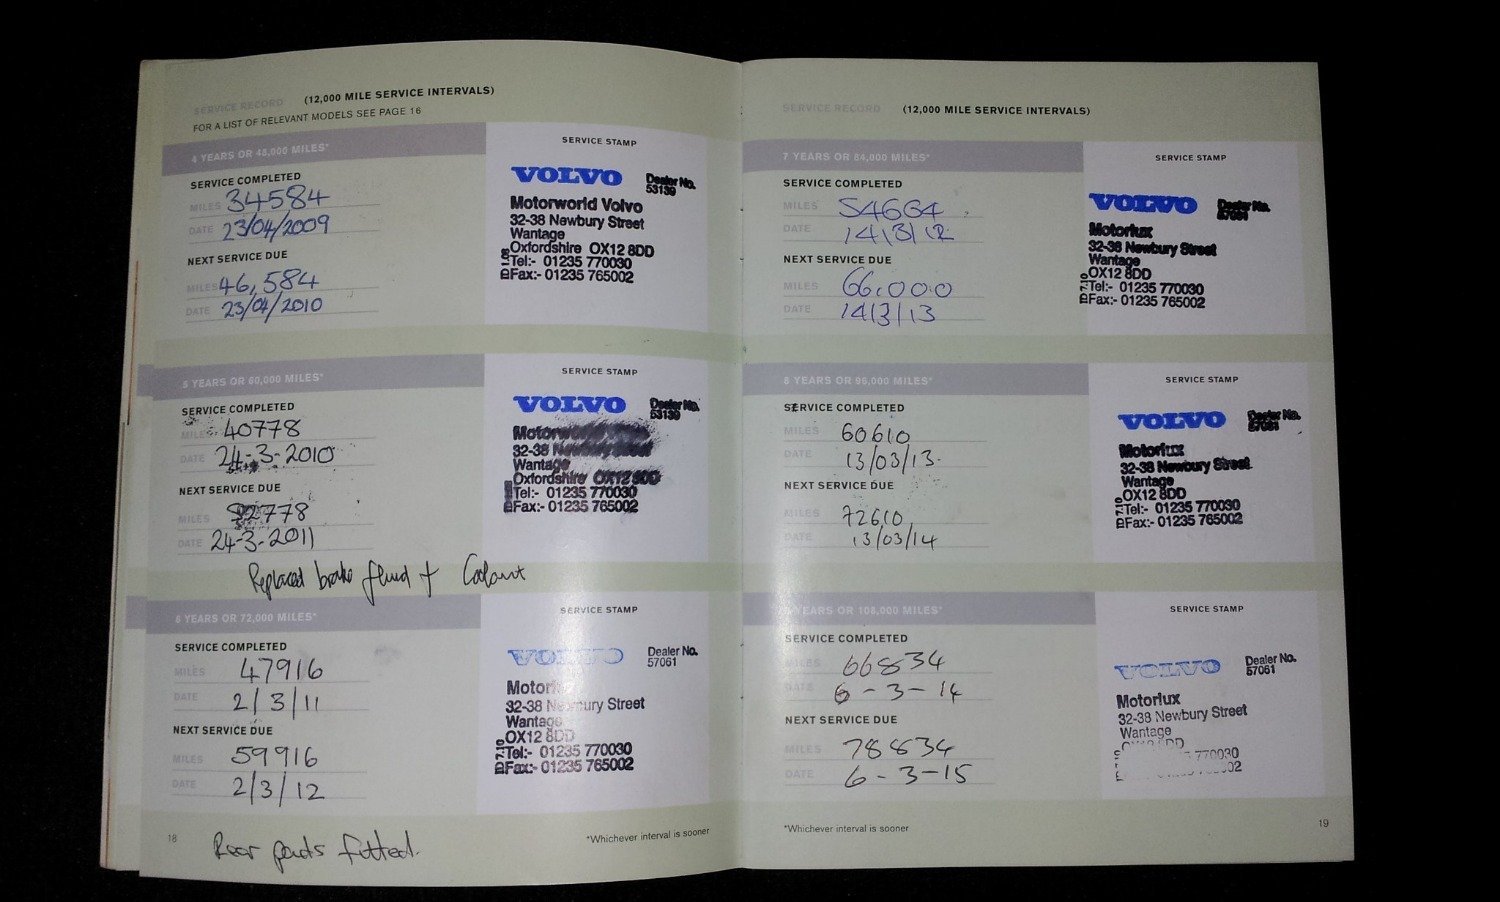 SERVICE RECORD (12,000 MILE SERVICE INTERVALS)
FOR A LIST OF RELEVANT MODELS SEE PAGE 16
4 YEARS OR 48,000 MILES*
SERVICE COMPLETED
MILES 34584
DATE 23/04/2009
NEXT SERVICE DUE
MILES 46,584
DATE 23/04/2010
SERVICE STAMP
VOLVO Dealer No.
53139
Motorworld Volvo
32-38 Newbury Street
Wantage
Oxfordshire OX12 8DD
Tel:- 01235 770030
Fax:- 01235 765002
5 YEARS OR 60,000 MILES*
SERVICE COMPLETED
MILES 40778
DATE 24-3-2010
NEXT SERVICE DUE
MILES 52778
DATE 24-3-2011
SERVICE STAMP
VOLVO Dealer No.
53139
32-38 Newbury Street
Wantage
Oxfordshire OX12 8DD
Tel:- 01235 770030
Fax:- 01235 765002
Replaced brake fluid + Coolant
6 YEARS OR 72,000 MILES*
SERVICE COMPLETED
MILES 47916
DATE 2/3/11
NEXT SERVICE DUE
MILES 59916
DATE 2/3/12
SERVICE STAMP
VOLVO Dealer No.
57061
32-38 Newbury Street
Wantage
OX12 8DD
Tel:- 01235 770030
Fax:- 01235 765002
18
Rear pads fitted.
*Whichever interval is sooner
SERVICE RECORD (12,000 MILE SERVICE INTERVALS)
7 YEARS OR 84,000 MILES*
SERVICE COMPLETED
MILES 54664
DATE 14/3/12
NEXT SERVICE DUE
MILES 66,000
DATE 14/3/13
SERVICE STAMP
VOLVO Dealer No.
57061
Motorlux
32-38 Newbury Street
Wantage
OX12 8DD
Tel:- 01235 770030
Fax:- 01235 765002
8 YEARS OR 96,000 MILES*
SERVICE COMPLETED
MILES 60610
DATE 13/03/13.
NEXT SERVICE DUE
MILES 72610
DATE 13/03/14
SERVICE STAMP
VOLVO Dealer No.
57061
Motorlux
32-38 Newbury Street
Wantage
OX12 8DD
Tel:- 01235 770030
Fax:- 01235 765002
YEARS OR 108,000 MILES*
SERVICE COMPLETED
MILES 66834
DATE 6-3-14
NEXT SERVICE DUE
MILES 78834
DATE 6-3-15
SERVICE STAMP
VOLVO Dealer No.
57061
Motorlux
32-38 Newbury Street
Wantage
770030
*Whichever interval is sooner
19